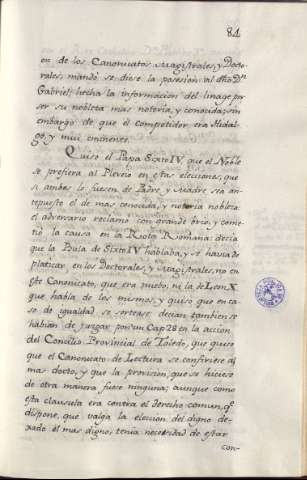 84
on de los Canonicatos Magistrales, y Docto-
rales, mandó se diese la posesion al dho Dn
Gabriel; hecha la informacion del linage por
ser su nobleza mas notoria, y conocida; sin
embargo de que el competidor era Hidal-
go, y mui eminente.
Quiso el Papa Sixto IV, que el Noble
se prefiera al Pleveio en estas elecciones, que
si ambos lo fuesen de Padre, y Madre sea an-
tepuesto el de mas conocida, y notoria nobleza:
el adversario reclamó con grande brio, y come-
tió la causa en la Rota Romana: decia
que la Bula de Sixto IV hablaba, y se havia de
platicar en los Doctorales, y Magistrales, no en
este Canonicato, que era mixto, ni la de Leon X
que habla de los mismos, y quiso que en ca-
so de igualdad se sortease decian tambien se
habian de juzgar por un Cap 28 en la accion
del Concilio Provincial de Toledo, que quiso
que el Canonicato de Lectura se confiriere al
mas docto, y que la provision, que se hiciese
de otra manera fuese ninguna; aunque como
esta clausula era contra el derecho comun, qe
dispone, que valga la eleccion del digno de-
xado el mas digno, tenia necesidad de estar
con-